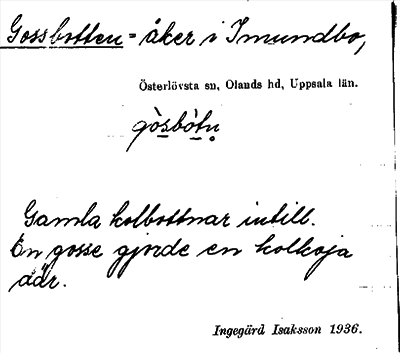 Gossbotten = åker i Imundbo,
Österlövsta sn, Olands hd, Uppsala län.
gòsbòtn̥
Gamla kolbottnar intill.
En gosse gjorde en kolkoja
där.
Ingegärd Isaksson 1936.